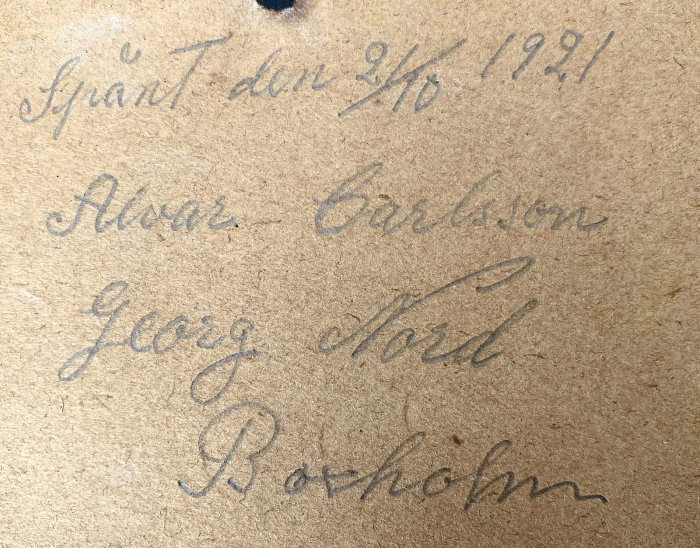 Spänt den 2/10 1921
Alvar Carlsson
Georg Nord
Boxholm